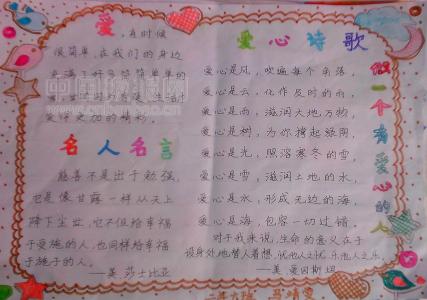 爱,有时候
很简单,在我们的身边
充满了好多简简单单的
爱
更加的精彩
名人名言
慈善不是出于勉强,
它是像甘露一样从天上
降下尘世,它不但给幸福
于受施的人,也同样给幸福
于施予的人。
——英 莎士比亚
爱心诗歌
爱心是风,吹遍每个角落
爱心是云,化作及时的雨,
爱心是雨,滋润大地万物,
爱心是树,为你撑起绿阴,
爱心是光,照溶寒冬的雪,
爱心是雪,滋润土地的水,
爱心是水,形成无边的海,
爱心是海,包容一切过错,
对于我来说,生命的意义在于
设身处地替人着想,忧他人之忧,乐他人之乐。
——美 爱因斯坦
做一个有爱心的人